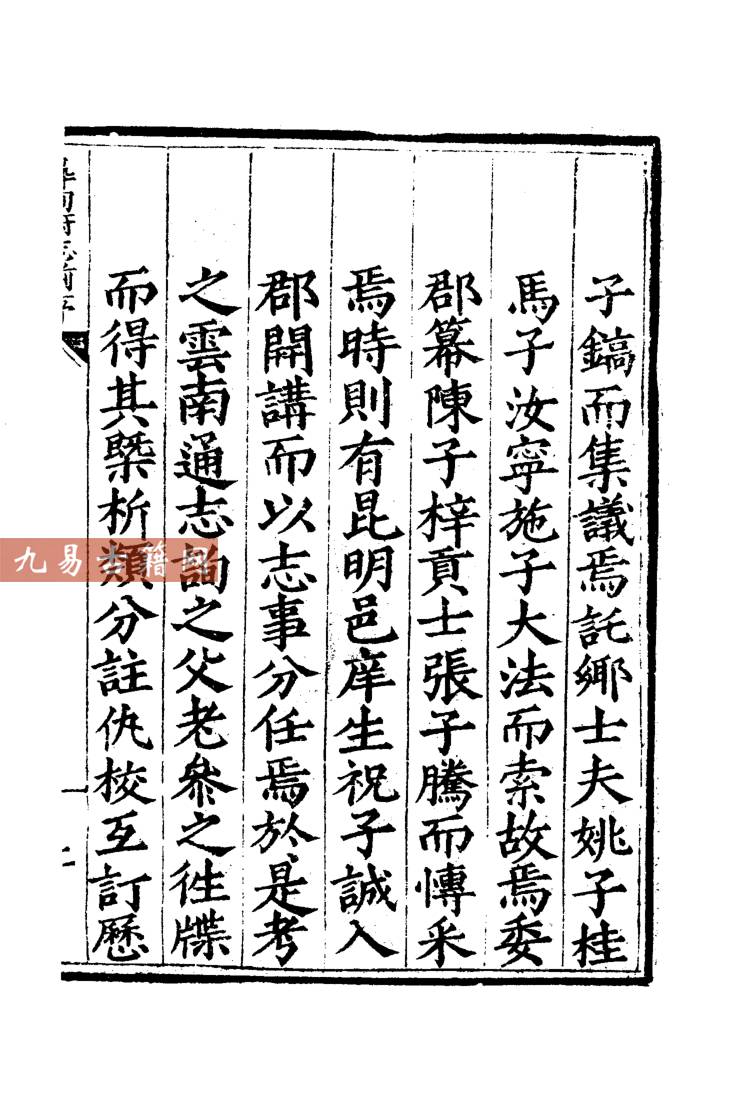 子鎬而集議焉託鄉士夫姚子桂
馬子汝寧施子大法而索故焉委
郡幕陳子梓貢士張子騰而慱采
焉時則有昆明邑庠生祝子誠入
郡開講而以志事分任焉於是考
之雲南通志詢之父老叅之徃牒
而得其槩析類分註仇校互訂歷
尋甸府志前序
九易古籍网